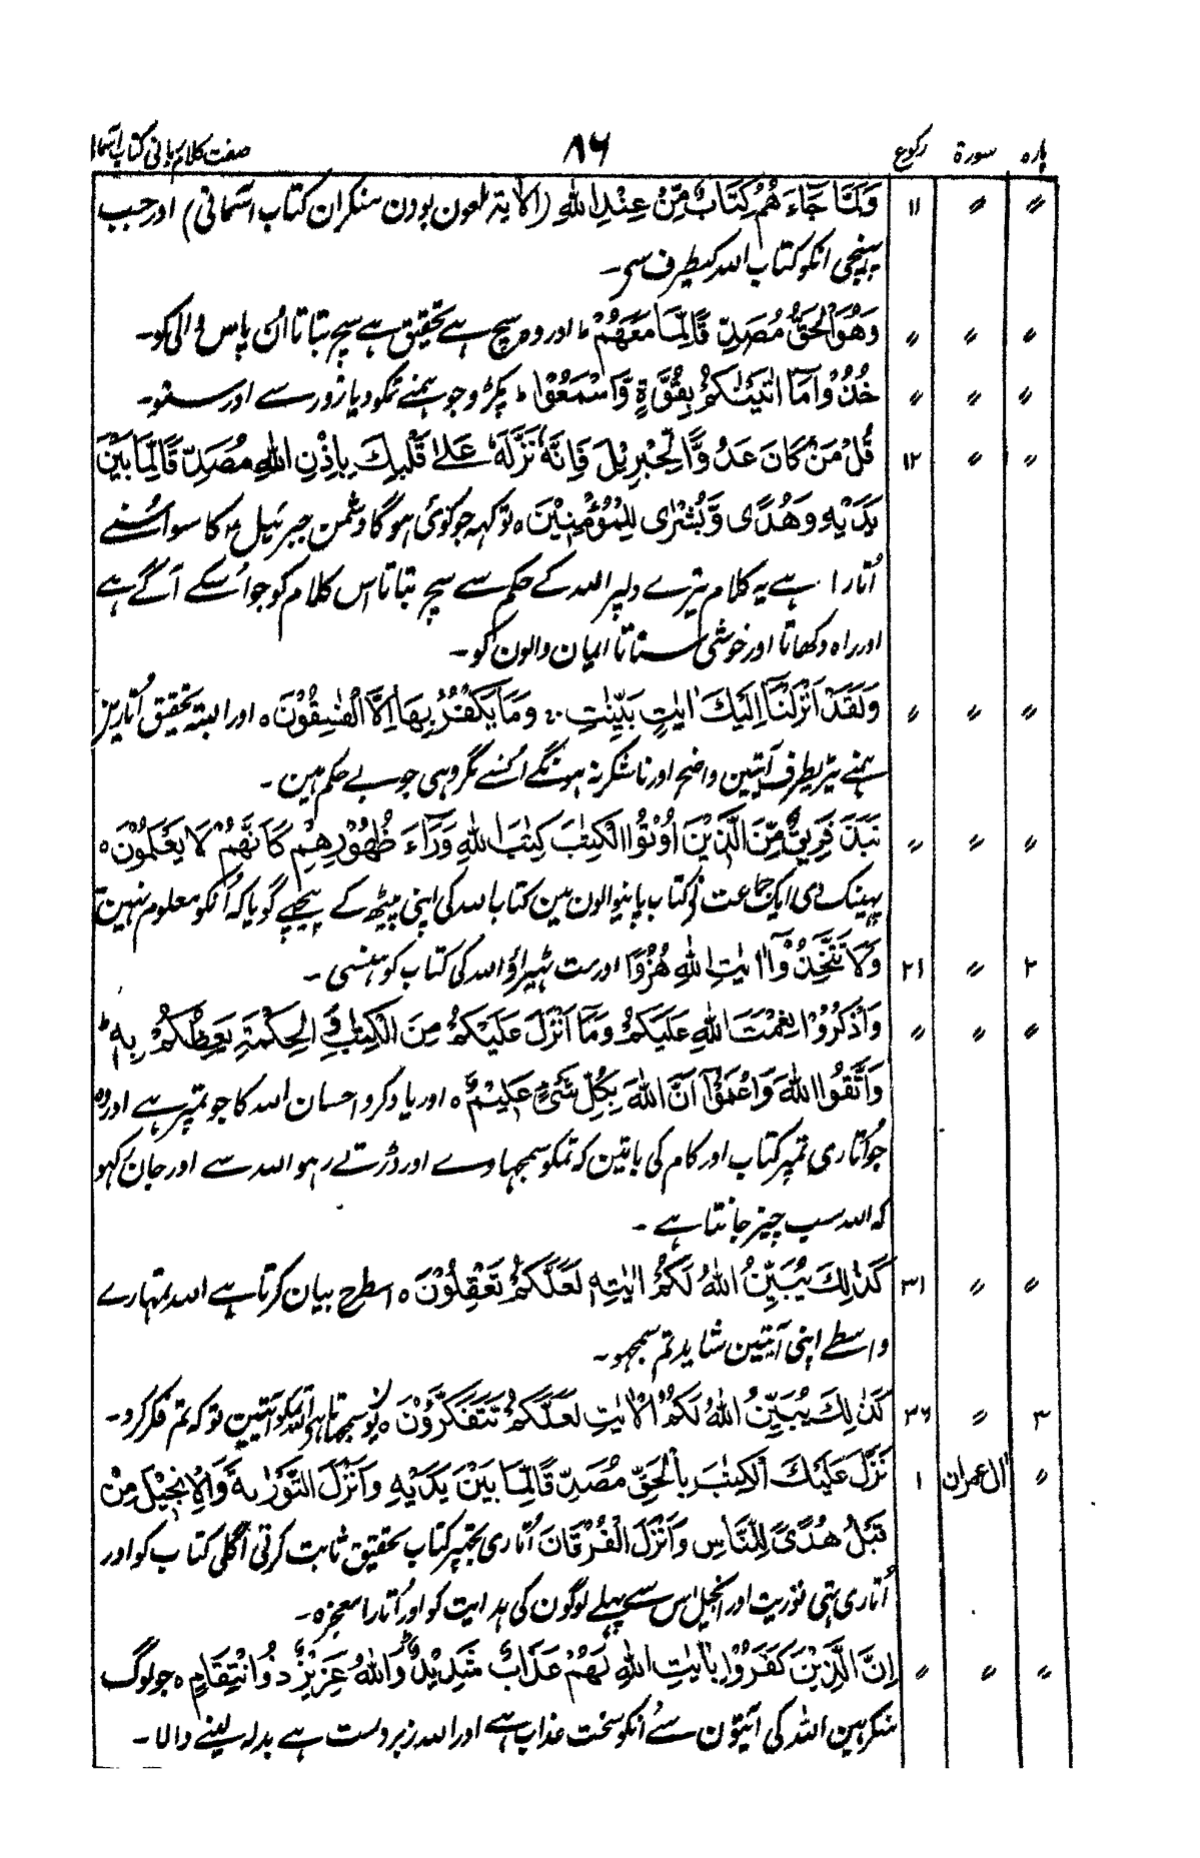 پارہ سورۃ رکوع ۸۶ صفت کلام ربانی کتاب آسما
〃 〃 ۱۱ وَلَمَّا جَاءَهُمْ كِتَابٌ مِّنْ عِنْدِ اللهِ (الآیۃ ملعون بودن منکران کتاب آسمانی) اور جب
پہنچی انکو کتاب اللہ کیطرف سی۔
〃 〃 〃 وَهُوَ الْحَقُّ مُصَدِّقًا لِّمَا مَعَهُمْ ط اور وہ سچ ہے تحقیق ہے سچ بتاتا اُن پاس والی کو۔
〃 〃 〃 خُذُوْا مَآ اٰتَيْنٰكُمْ بِقُوَّةٍ وَّاسْمَعُوْا ط پکڑو جو ہمنے تمکو دیا زور سے اور سنو۔
〃 〃 ۱۲ قُلْ مَنْ كَانَ عَدُوًّا لِّجِبْرِيْلَ فَاِنَّهٗ نَزَّلَهٗ عَلٰى قَلْبِكَ بِاِذْنِ اللهِ مُصَدِّقًا لِّمَا بَيْنَ
يَدَيْهِ وَهُدًى وَّبُشْرٰى لِلْمُؤْمِنِيْنَ ہ تو کہہ جو کوئی ہوگا دشمن جبرئیل ؑ کا سو اُسنے
اُتارا ہے یہ کلام تیرے دلپر اللہ کے حکم سے سچ بتاتا اس کلام کو جو اُسکے آگے ہے
اور راہ دکھاتا اور خوشی سناتا ایمان والون کو۔
〃 〃 〃 وَلَقَدْ اَنْزَلْنَآ اِلَيْكَ اٰيٰتٍ بَيِّنٰتٍ ۚ وَمَا يَكْفُرُ بِهَآ اِلَّا الْفٰسِقُوْنَ ہ اور البتہ تحقیق اُتارین
ہمنے تیریطرف آیتین واضح اور نا شکر نہ ہونگے اُنسے مگر وہی جو بے حکم ہین۔
〃 〃 〃 نَبَذَ فَرِيْقٌ مِّنَ الَّذِيْنَ اُوْتُوا الْكِتٰبَ كِتٰبَ اللهِ وَرَآءَ ظُهُوْرِهِمْ كَاَنَّهُمْ لَا يَعْلَمُوْنَ ہ
پہینک دی ایک جماعت نے کتاب پانیوالون مین کتاب اللہ کی اپنی پیٹھ کے پیچھے گویا کہ اُنکو معلوم نہین
۲ 〃 ۲۱ وَلَا تَتَّخِذُوْٓا اٰيٰتِ اللهِ هُزُوًا اور مت ٹہیراؤ اللہ کی کتاب کو ہنسی۔
〃 〃 〃 وَاذْكُرُوْا نِعْمَتَ اللهِ عَلَيْكُمْ وَمَآ اَنْزَلَ عَلَيْكُمْ مِنَ الْكِتٰبِ وَالْحِكْمَةِ يَعِظُكُمْ بِهٖ ط
وَاتَّقُوا اللهَ وَاعْلَمُوْٓا اَنَّ اللهَ بِكُلِّ شَيْءٍ عَلِيْمٌ ہ اور یاد کرو احسان اللہ کا جو تمپر ہے اور وہ
جو اُتاری تمپر کتاب اور کام کی باتین کہ تمکو سمجہاوے اور ڈرتے رہو اللہ سے اور جان رکہو
کہ اللہ سب چیز جانتا ہے۔
〃 〃 ۳۱ كَذٰلِكَ يُبَيِّنُ اللهُ لَكُمْ اٰيٰتِهٖ لَعَلَّكُمْ تَعْقِلُوْنَ ہ اسطرح بیان کرتا ہے اللہ تمہارے
واسطے اپنی آیتین شاید تم سمجہو۔
۳ 〃 ۳۶ كَذٰلِكَ يُبَيِّنُ اللهُ لَكُمُ الْاٰيٰتِ لَعَلَّكُمْ تَتَفَكَّرُوْنَ ہ یون سمجہاتا ہو اللہ تمکو آیتین تو کہ تم فکر کرو۔
〃 اٰل عمران ۱ نَزَّلَ عَلَيْكَ الْكِتٰبَ بِالْحَقِّ مُصَدِّقًا لِّمَا بَيْنَ يَدَيْهِ وَاَنْزَلَ التَّوْرٰىةَ وَالْاِنْجِيْلَ مِنْ
قَبْلُ هُدًى لِّلنَّاسِ وَاَنْزَلَ الْفُرْقَانَ اُتاری تجہپر کتاب تحقیق ثابت کرتی اگلی کتاب کو اور
اُتاری تہی توریت اور انجیل اس سے پہلے لوگون کی ہدایت کو اور اُتارا معجزہ۔
〃 〃 〃 اِنَّ الَّذِيْنَ كَفَرُوْا بِاٰيٰتِ اللهِ لَهُمْ عَذَابٌ شَدِيْدٌ ط وَاللهُ عَزِيْزٌ ذُو انْتِقَامٍ ہ جو لوگ
منکر ہین اللہ کی آیتون سے اُنکو سخت عذاب ہے اور اللہ زبردست ہے بدلہ لینے والا۔